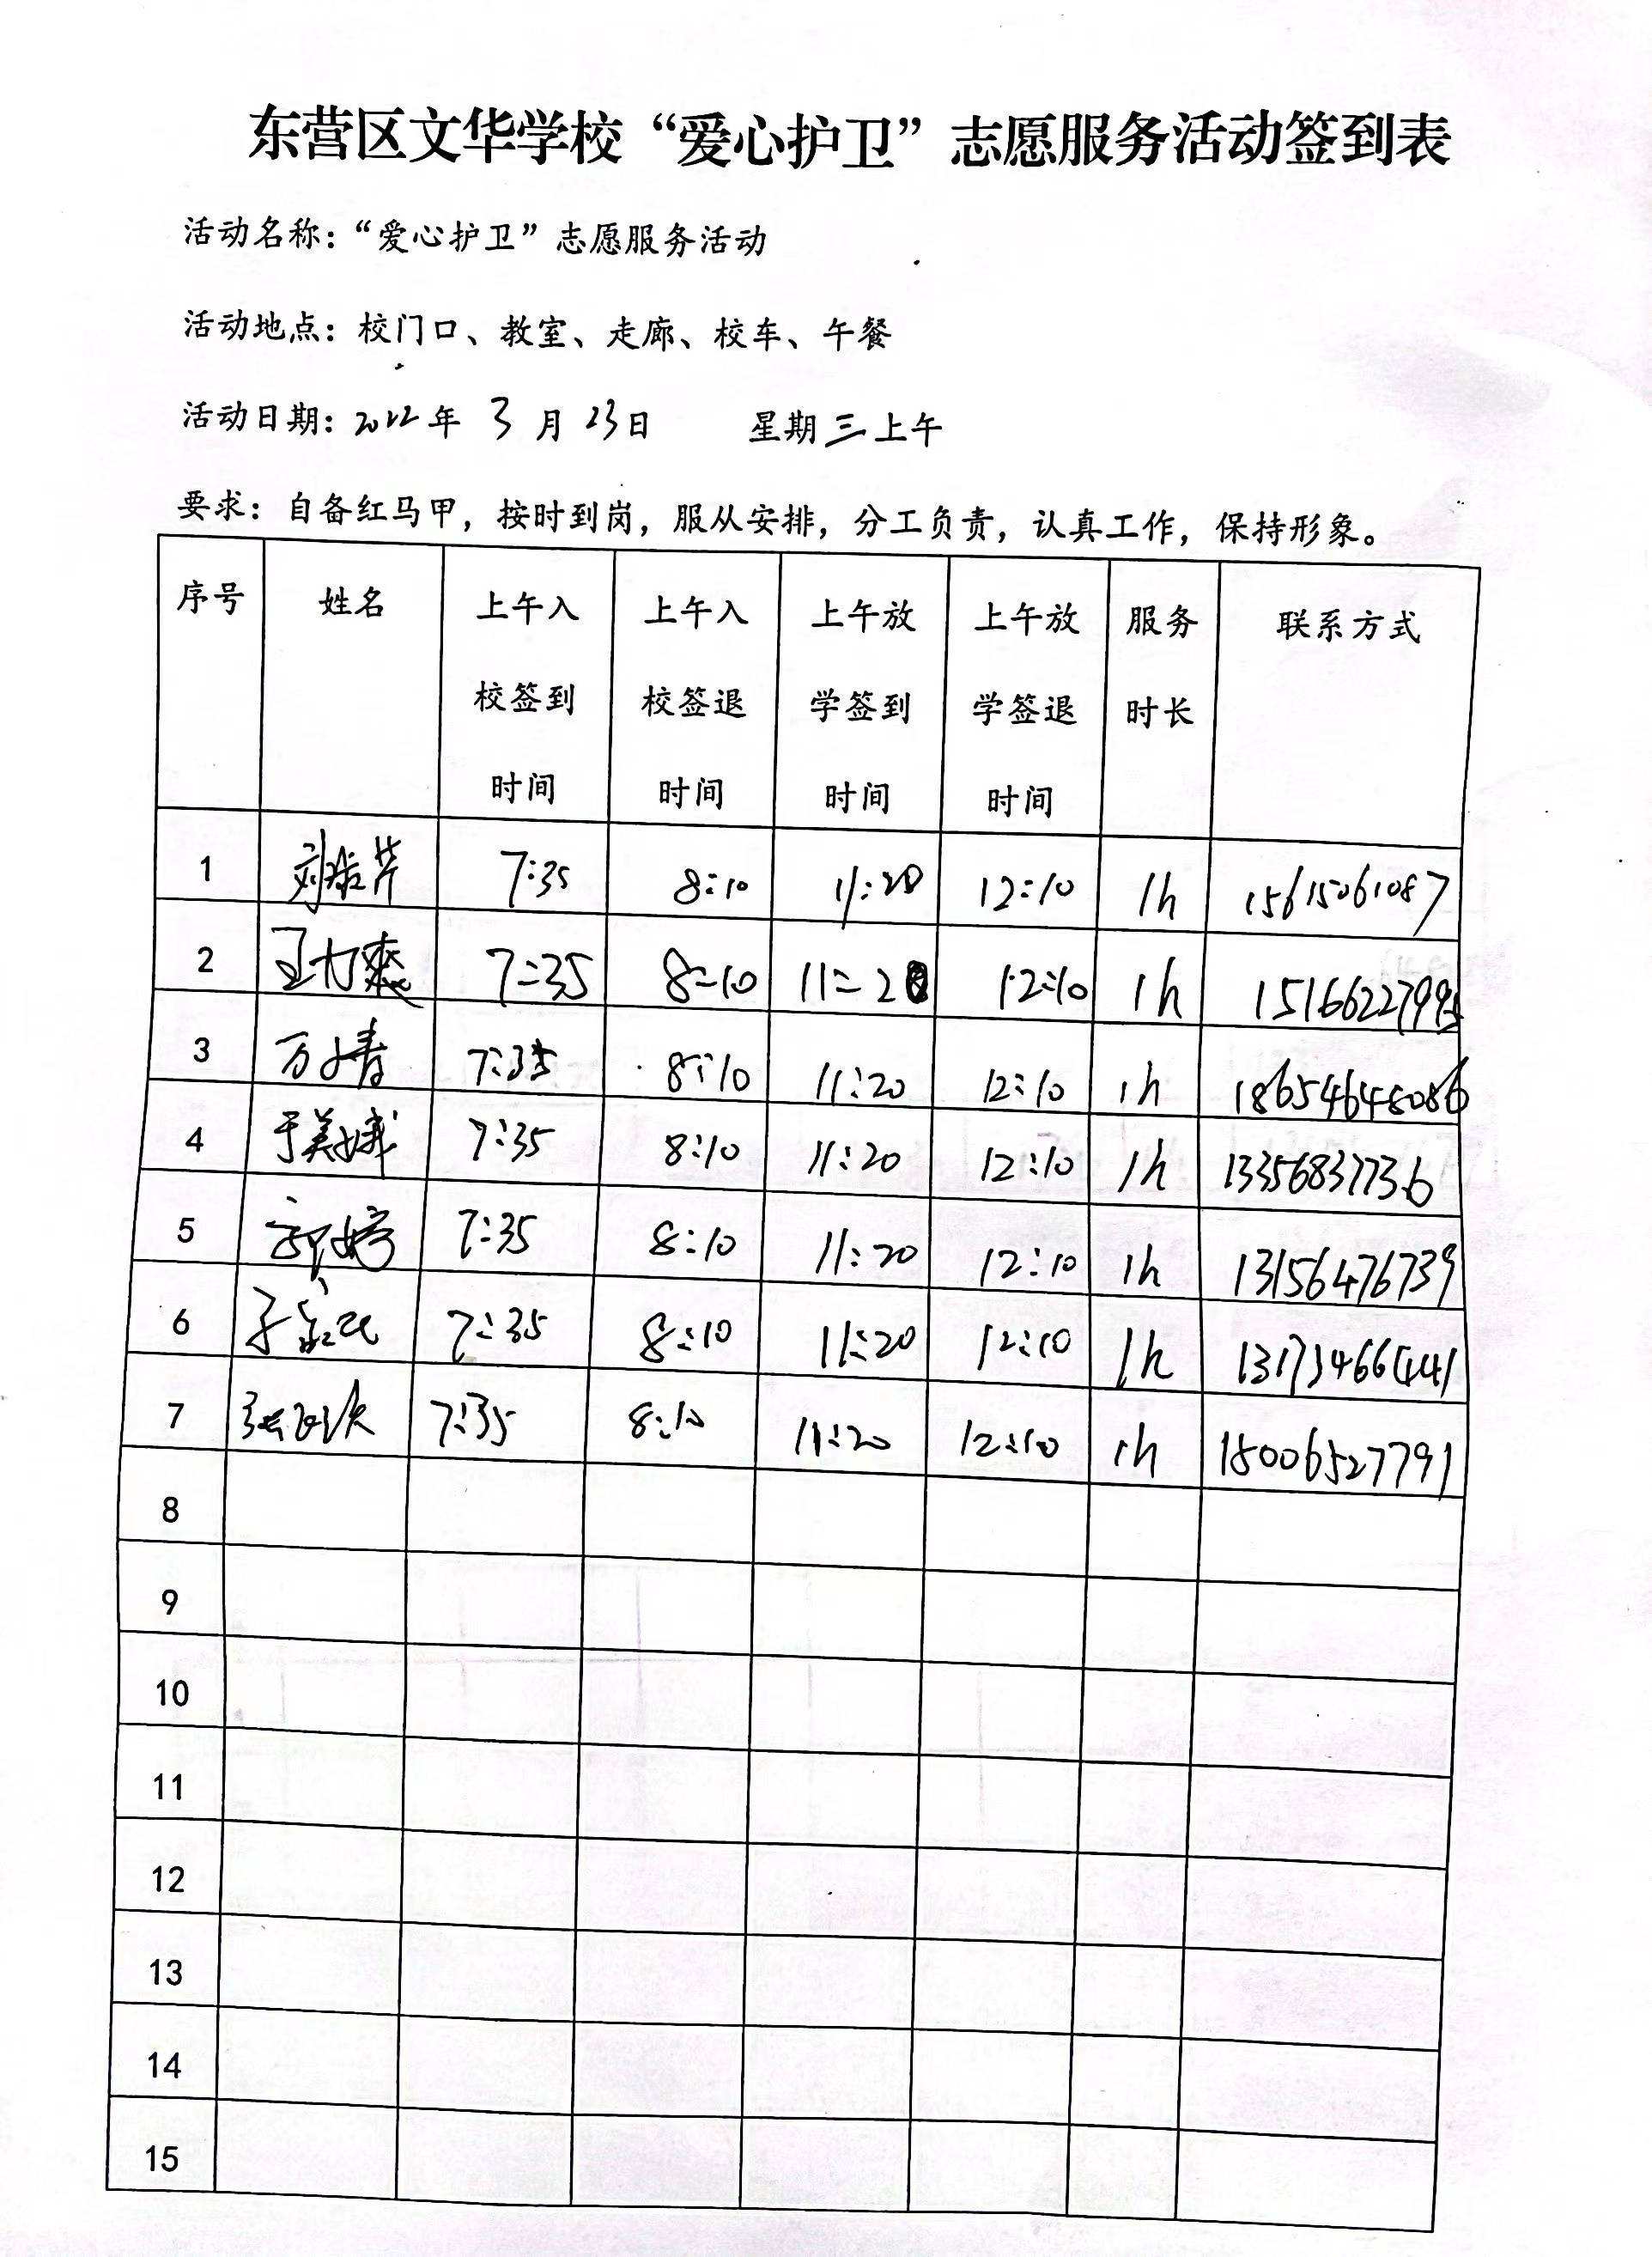 东营区文华学校“爱心护卫”志愿服务活动签到表
活动名称：“爱心护卫”志愿服务活动
活动地点：校门口、教室、走廊、校车、午餐
活动日期：2022年 3月 23日 星期三上午
要求：自备红马甲，按时到岗，服从安排，分工负责，认真工作，保持形象。
序号 姓名 上午入校签到时间 上午入校签退时间 上午放学签到时间 上午放学签退时间 服务时长 联系方式
1 7:35 8:10 11:20 12:10 1h 15615061087
2 7:35 8:10 11:20 12:10 1h
3 7:35 8:10 11:20 12:10 1h 18654648086
4 于美娥 7:35 8:10 11:20 12:10 1h 13356837736
5 7:35 8:10 11:20 12:10 1h 13156476739
6 7:35 8:10 11:20 12:10 1h
7 7:35 8:10 11:20 12:10 1h
8
9
10
11
12
13
14
15